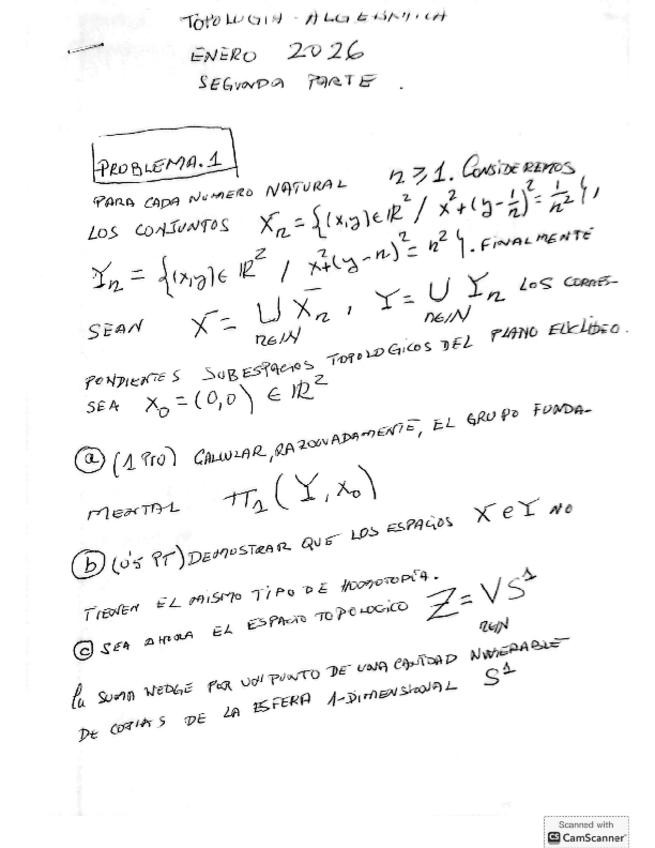 TOPOLOGIA ALGEBRAICA
ENERO 2026
SEGUNDA PARTE.
PROBLEMA.1
PARA CADA NUMERO NATURAL n ≥ 1. CONSIDEREMOS
LOS CONJUNTOS X_n = {(x,y) ∈ ℝ² / x² + (y - 1/n)² = 1/n²},
Y_n = {(x,y) ∈ ℝ² / x² + (y - n)² = n²}. FINALMENTE
SEAN X = ⋃_{n∈ℕ} X_n, Y = ⋃_{n∈ℕ} Y_n LOS CORRES-
PONDIENTES SUBESPACIOS TOPOLOGICOS DEL PLANO EUCLÍDEO.
SEA x₀ = (0,0) ∈ ℝ²
(a) (1 PTO) CALCULAR, RAZONADAMENTE, EL GRUPO FUNDA-
MENTAL π₁(Y, x₀)
(b) (0'5 PT) DEMOSTRAR QUE LOS ESPACIOS X e Y NO
TIENEN EL MISMO TIPO DE HOMOTOPÍA.
(c) SEA AHORA EL ESPACIO TOPOLOGICO Z = ⋁_{n∈ℕ} S¹
la SUMA WEDGE POR UN PUNTO DE UNA CANTIDAD NUMERABLE
DE COPIAS DE LA ESFERA 1-DIMENSIONAL S¹
Scanned with
CS CamScanner